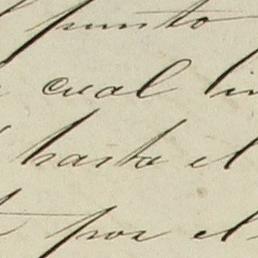 punto
cual
hasta el
por el